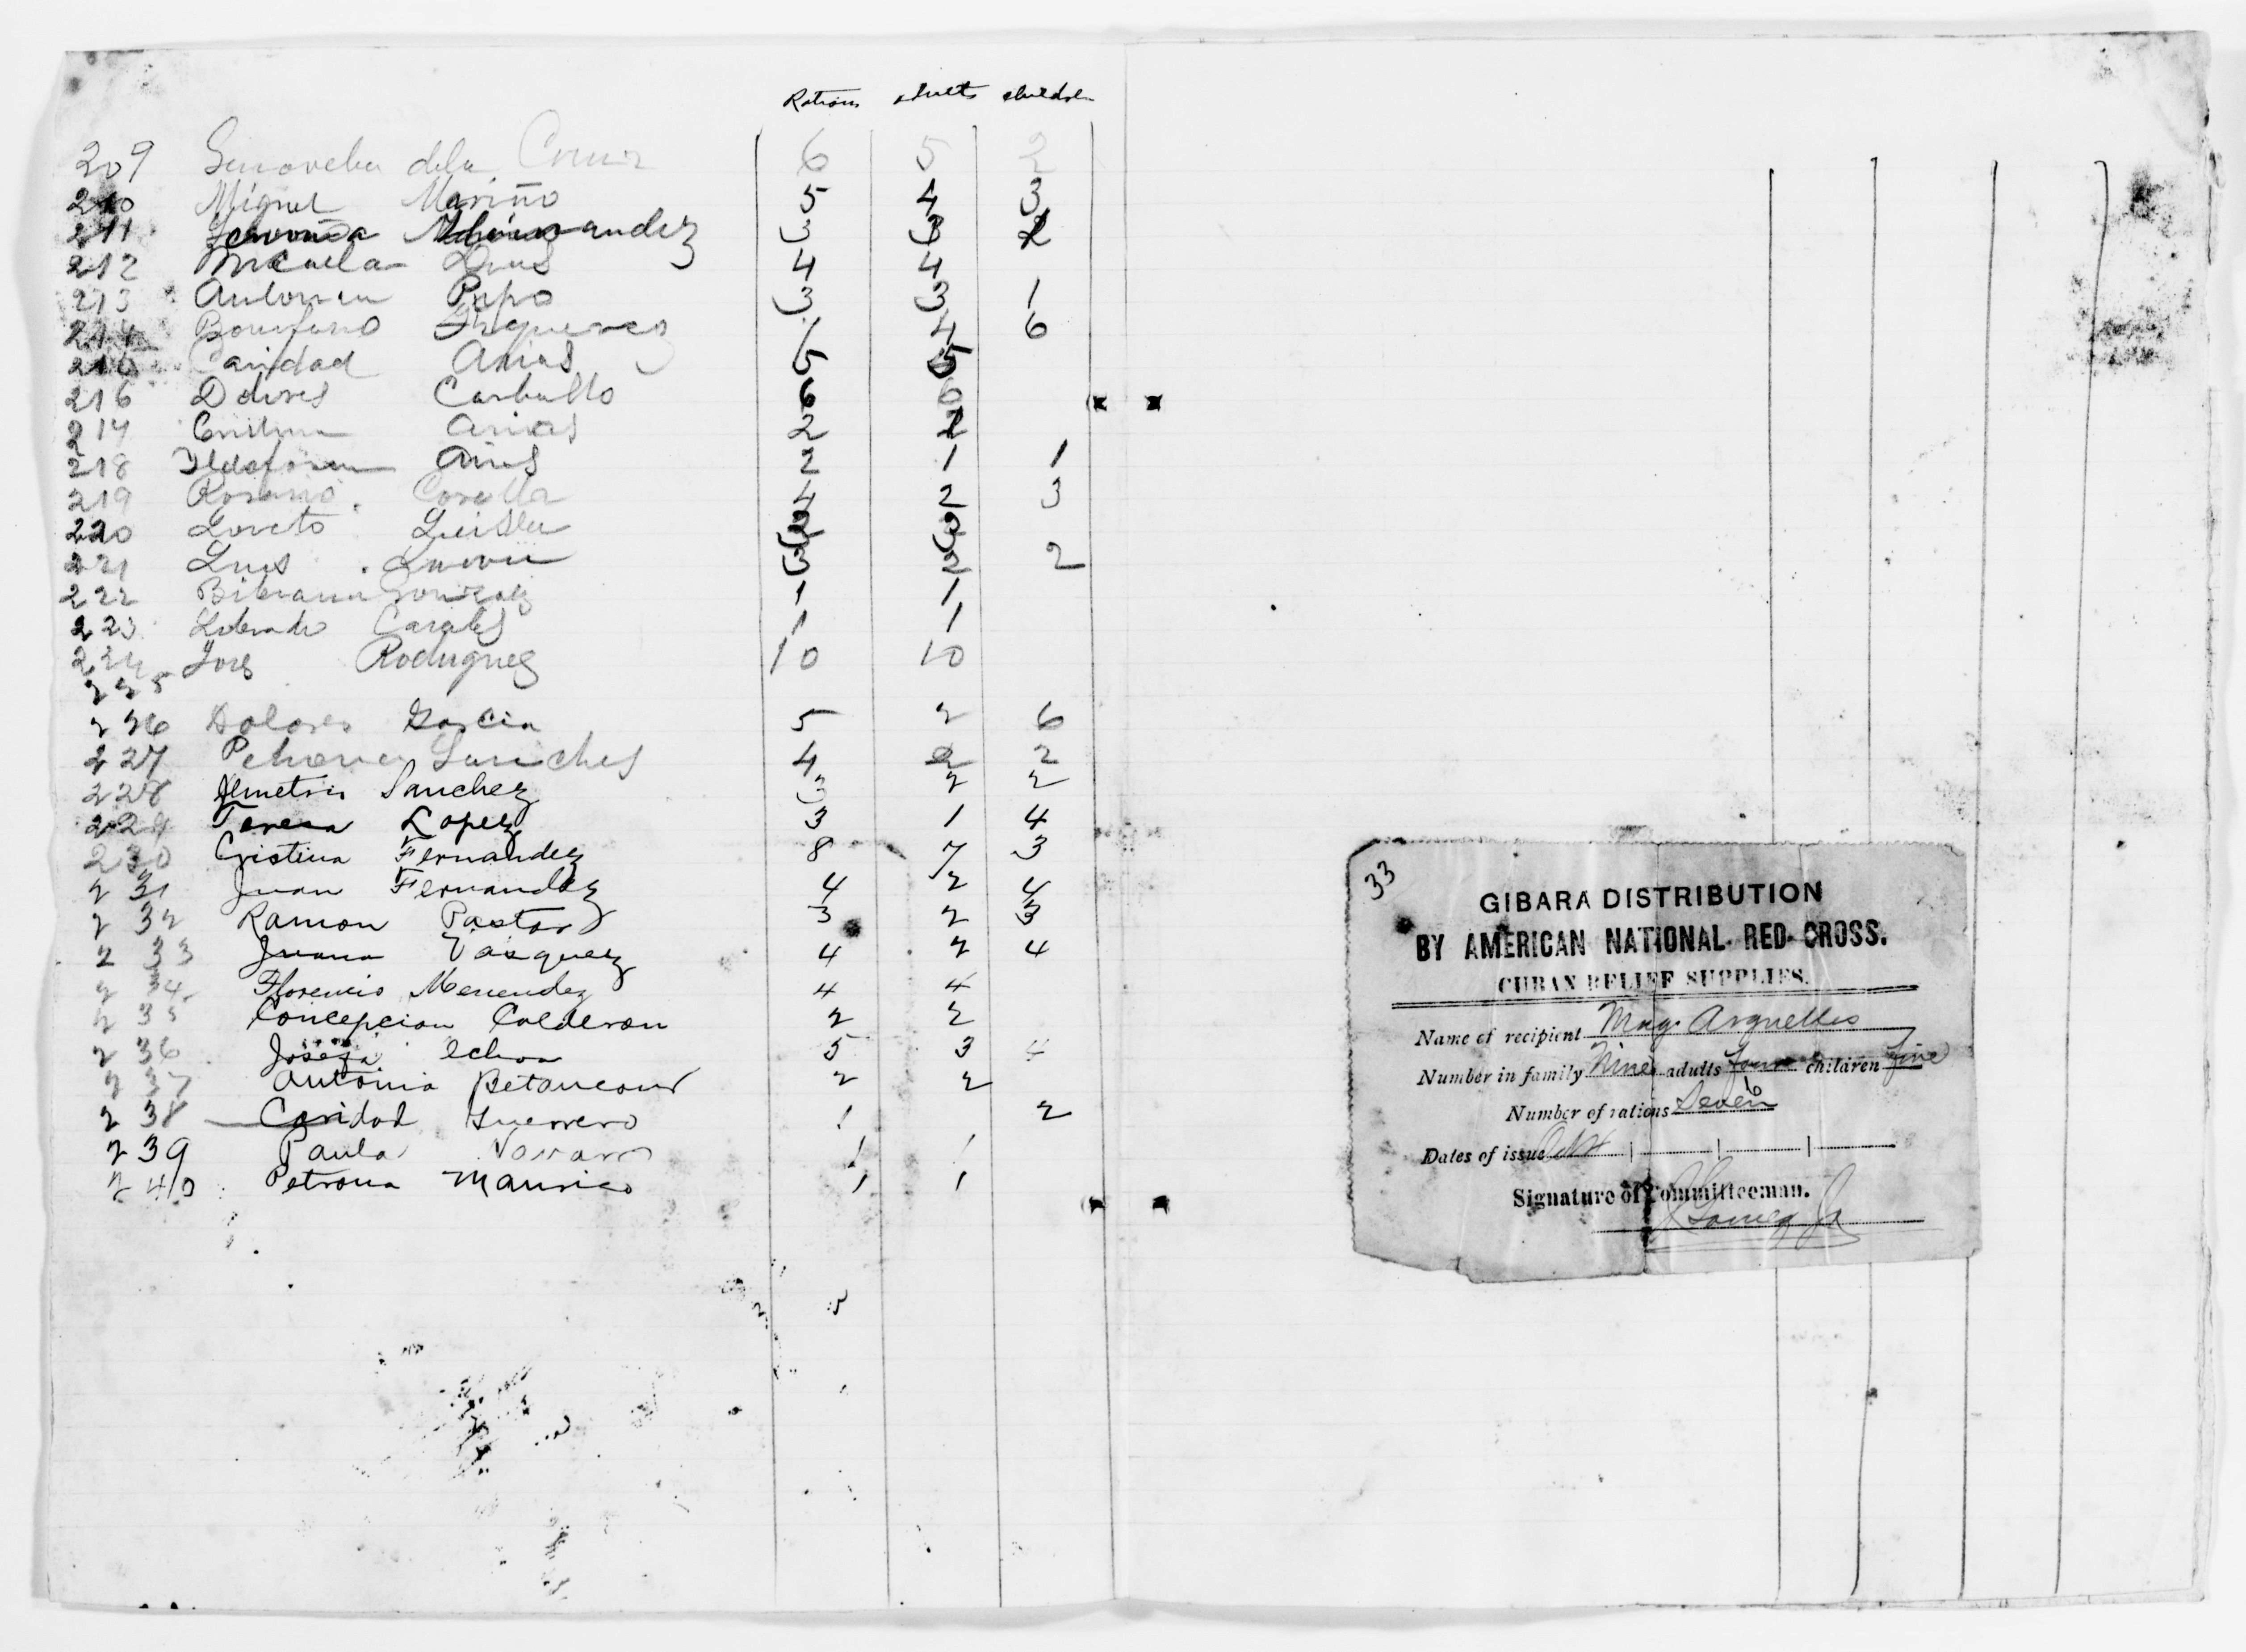 Rations adults children
209 Genoveba dela Cruz 6 5 2
210 Miguel Mariño 5 4 3
211 3 3 2
212 Micaela 4 4
213 Pupo 3 3 1
214 Bonifacio 4 6
215 Caridad Arias 5 5
216 Dolores Carballo 6 6
217 Arias 2 2
218 2 1 1
219 Rosario 4 2 3
220 Loreto 3 3
221 Luis 3 2 2
222 Bibiana Gonzalez 1 1
223 Librado 1 1
224 Jose Rodriguez 10 10
225
226 Dolores Garcia 5 2 6
227 Petrona Sanches 4 2 2
228 Demetrio Sanchez 3 2 2
229 Teresa Lopez 3 1 4
230 Cristina Fernandez 8 7 3
231 Juan Fernandez 4 2 4
232 Ramon Pastor 3 2 3
233 Juana Vasquez 4 2 4
234 Florencio Menendez 4 4
235 Concepcion Calderon 2 2
236 Josefa Ochoa 5 3 4
237 Antonia Betancourt 2 2
238 Caridad Guerrero 1 2
239 Paula Navarro 1 1
240 Petrona Maurico 1 1
33
GIBARA DISTRIBUTION
BY AMERICAN NATIONAL RED CROSS.
CUBAN RELIEF SUPPLIES.
Name of recipient Mag. Arguelles
Number in family Nine adults Four children Five
Number of rations Seven
Dates of issue
Signature of Committeeman.